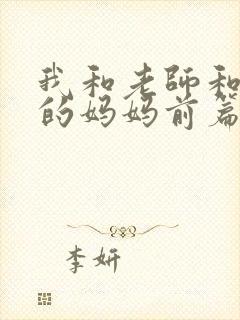 我和老師和
的妈妈前篇
李妍